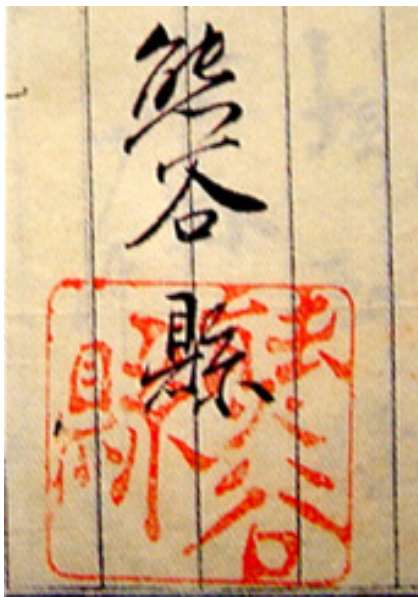 熊谷縣
熊谷
縣